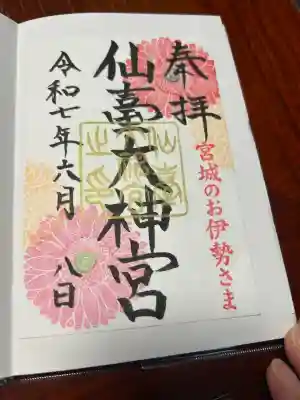 奉拝
宮城のお伊勢さま
仙臺大神宮
令和七年六月八日